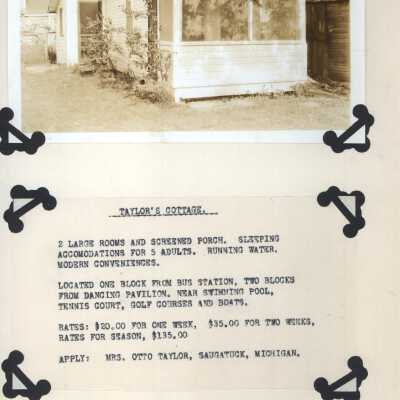 TAYLOR'S COTTAGE.
2 LARGE ROOMS AND SCREENED PORCH. SLEEPING
ACCOMODATIONS FOR 5 ADULTS. RUNNING WATER.
MODERN CONVENIENCES.
LOCATED ONE BLOCK FROM BUS STATION, TWO BLOCKS
FROM DANCING PAVILION. NEAR SWIMMING POOL,
TENNIS COURT, GOLF COURSES AND BOATS.
RATES: $20.00 FOR ONE WEEK, $35.00 FOR TWO WEEKS,
RATES FOR SEASON, $135.00
APPLY: MRS. OTTO TAYLOR, SAUGATUCK, MICHIGAN.